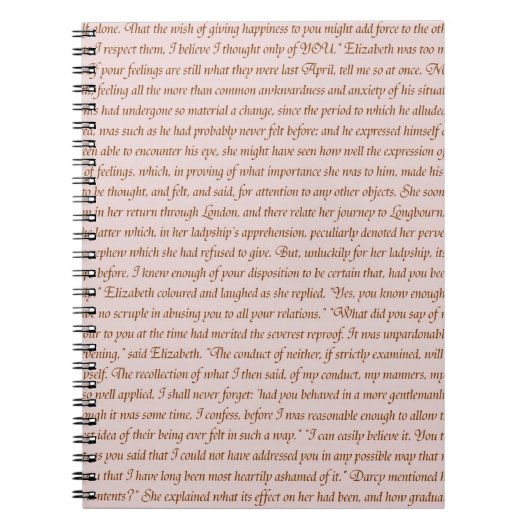 lf alone. That the wish of giving happiness to you might add force to the oth
as I respect them, I believe I thought only of YOU." Elizabeth was too m
If your feelings are still what they were last April, tell me so at once. M
th, feeling all the more than common awkwardness and anxiety of his situat
nts had undergone so material a change, since the period to which he alluded
ed, was such as he had probably never felt before; and he expressed himself o
een able to encounter his eye, she might have seen how well the expression of
of feelings, which, in proving of what importance she was to him, made his
to be thought, and felt, and said, for attention to any other objects. She soon
on in her return through London, and there relate her journey to Longbourn,
he latter which, in her ladyship's apprehension, peculiarly denoted her perve
nephew which she had refused to give. But, unluckily for her ladyship, its
pe before. I knew enough of your disposition to be certain that, had you bee
ly." Elizabeth coloured and laughed as she replied, "Yes, you know enough
ve no scruple in abusing you to all your relations." "What did you say of m
our to you at the time had merited the severest reproof. It was unpardonable
evening," said Elizabeth. "The conduct of neither, if strictly examined, will
yself. The recollection of what I then said, of my conduct, my manners, my
so well applied, I shall never forget: 'had you behaved in a more gentlemanli
ough it was some time, I confess, before I was reasonable enough to allow t
est idea of their being ever felt in such a way." "I can easily believe it. You t
t, as you said that I could not have addressed you in any possible way that
u that I have long been most heartily ashamed of it." Darcy mentioned h
ontents?" She explained what its effect on her had been, and how gradua